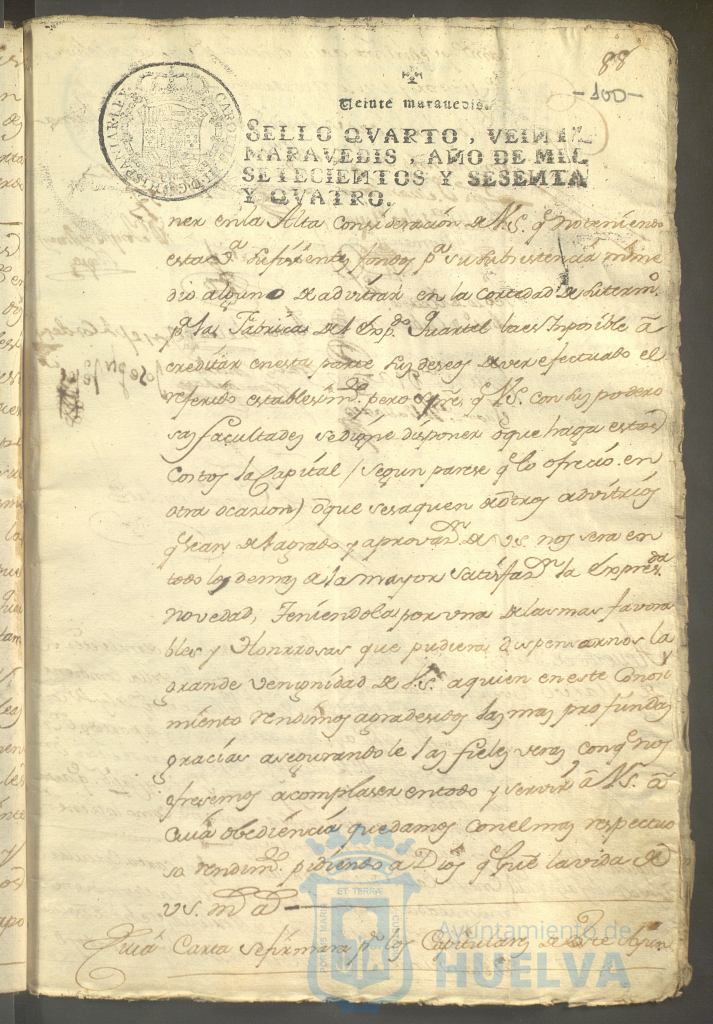 88
-100-
Veinte maravedis.
SELLO QVARTO, VEINTE
MARAVEDIS, AÑO DE MIL
SETECIENTOS Y SESENTA
Y QVATRO.
ner en la Alta Consideración de V.S. q.e no teniendo
esta diferentes fondos p.a su subsistencia ni me
dio alguno de advitrar en la Cortedad de su term.o
p.a las Fabricas del exp.do Quartel la es Imposible a
creditar en esta parte sus deseos de ver efectuado el
referido establesim.to pero q.e V.S. con sus podero
sas facultades se digne disponer o que haga estos
Cortos la Capital (segun parese q.e lo ofreció en
otra ocacion) o que se saquen de otros advitrios
q.e sean del agrado y aprovaz.n de V.S. nos sera en
todo lo demas de la mayor satisfaz.n la expres.da
novedad, Teniendola por vna de las mas favora
bles y Honrrosas que pudiera dispensarnos la
grande venignidad de V.S. a quien en este Conosi
miento rendimos agradesidos las mas profundas
gracias asegurandole las fieles veras con q.e nos
ofresemos a complaser en todo y servir a V.S. a
Cuia obediencia quedamos con el mas respectuo
so rendim.to pidiendo a Dios q.e gue la vida de
V.S. m.s a.s
Cuia Carta se firmara p.r los Capitulares de este Ayun
ET TERRÆ
Ayuntamiento de
HUELVA